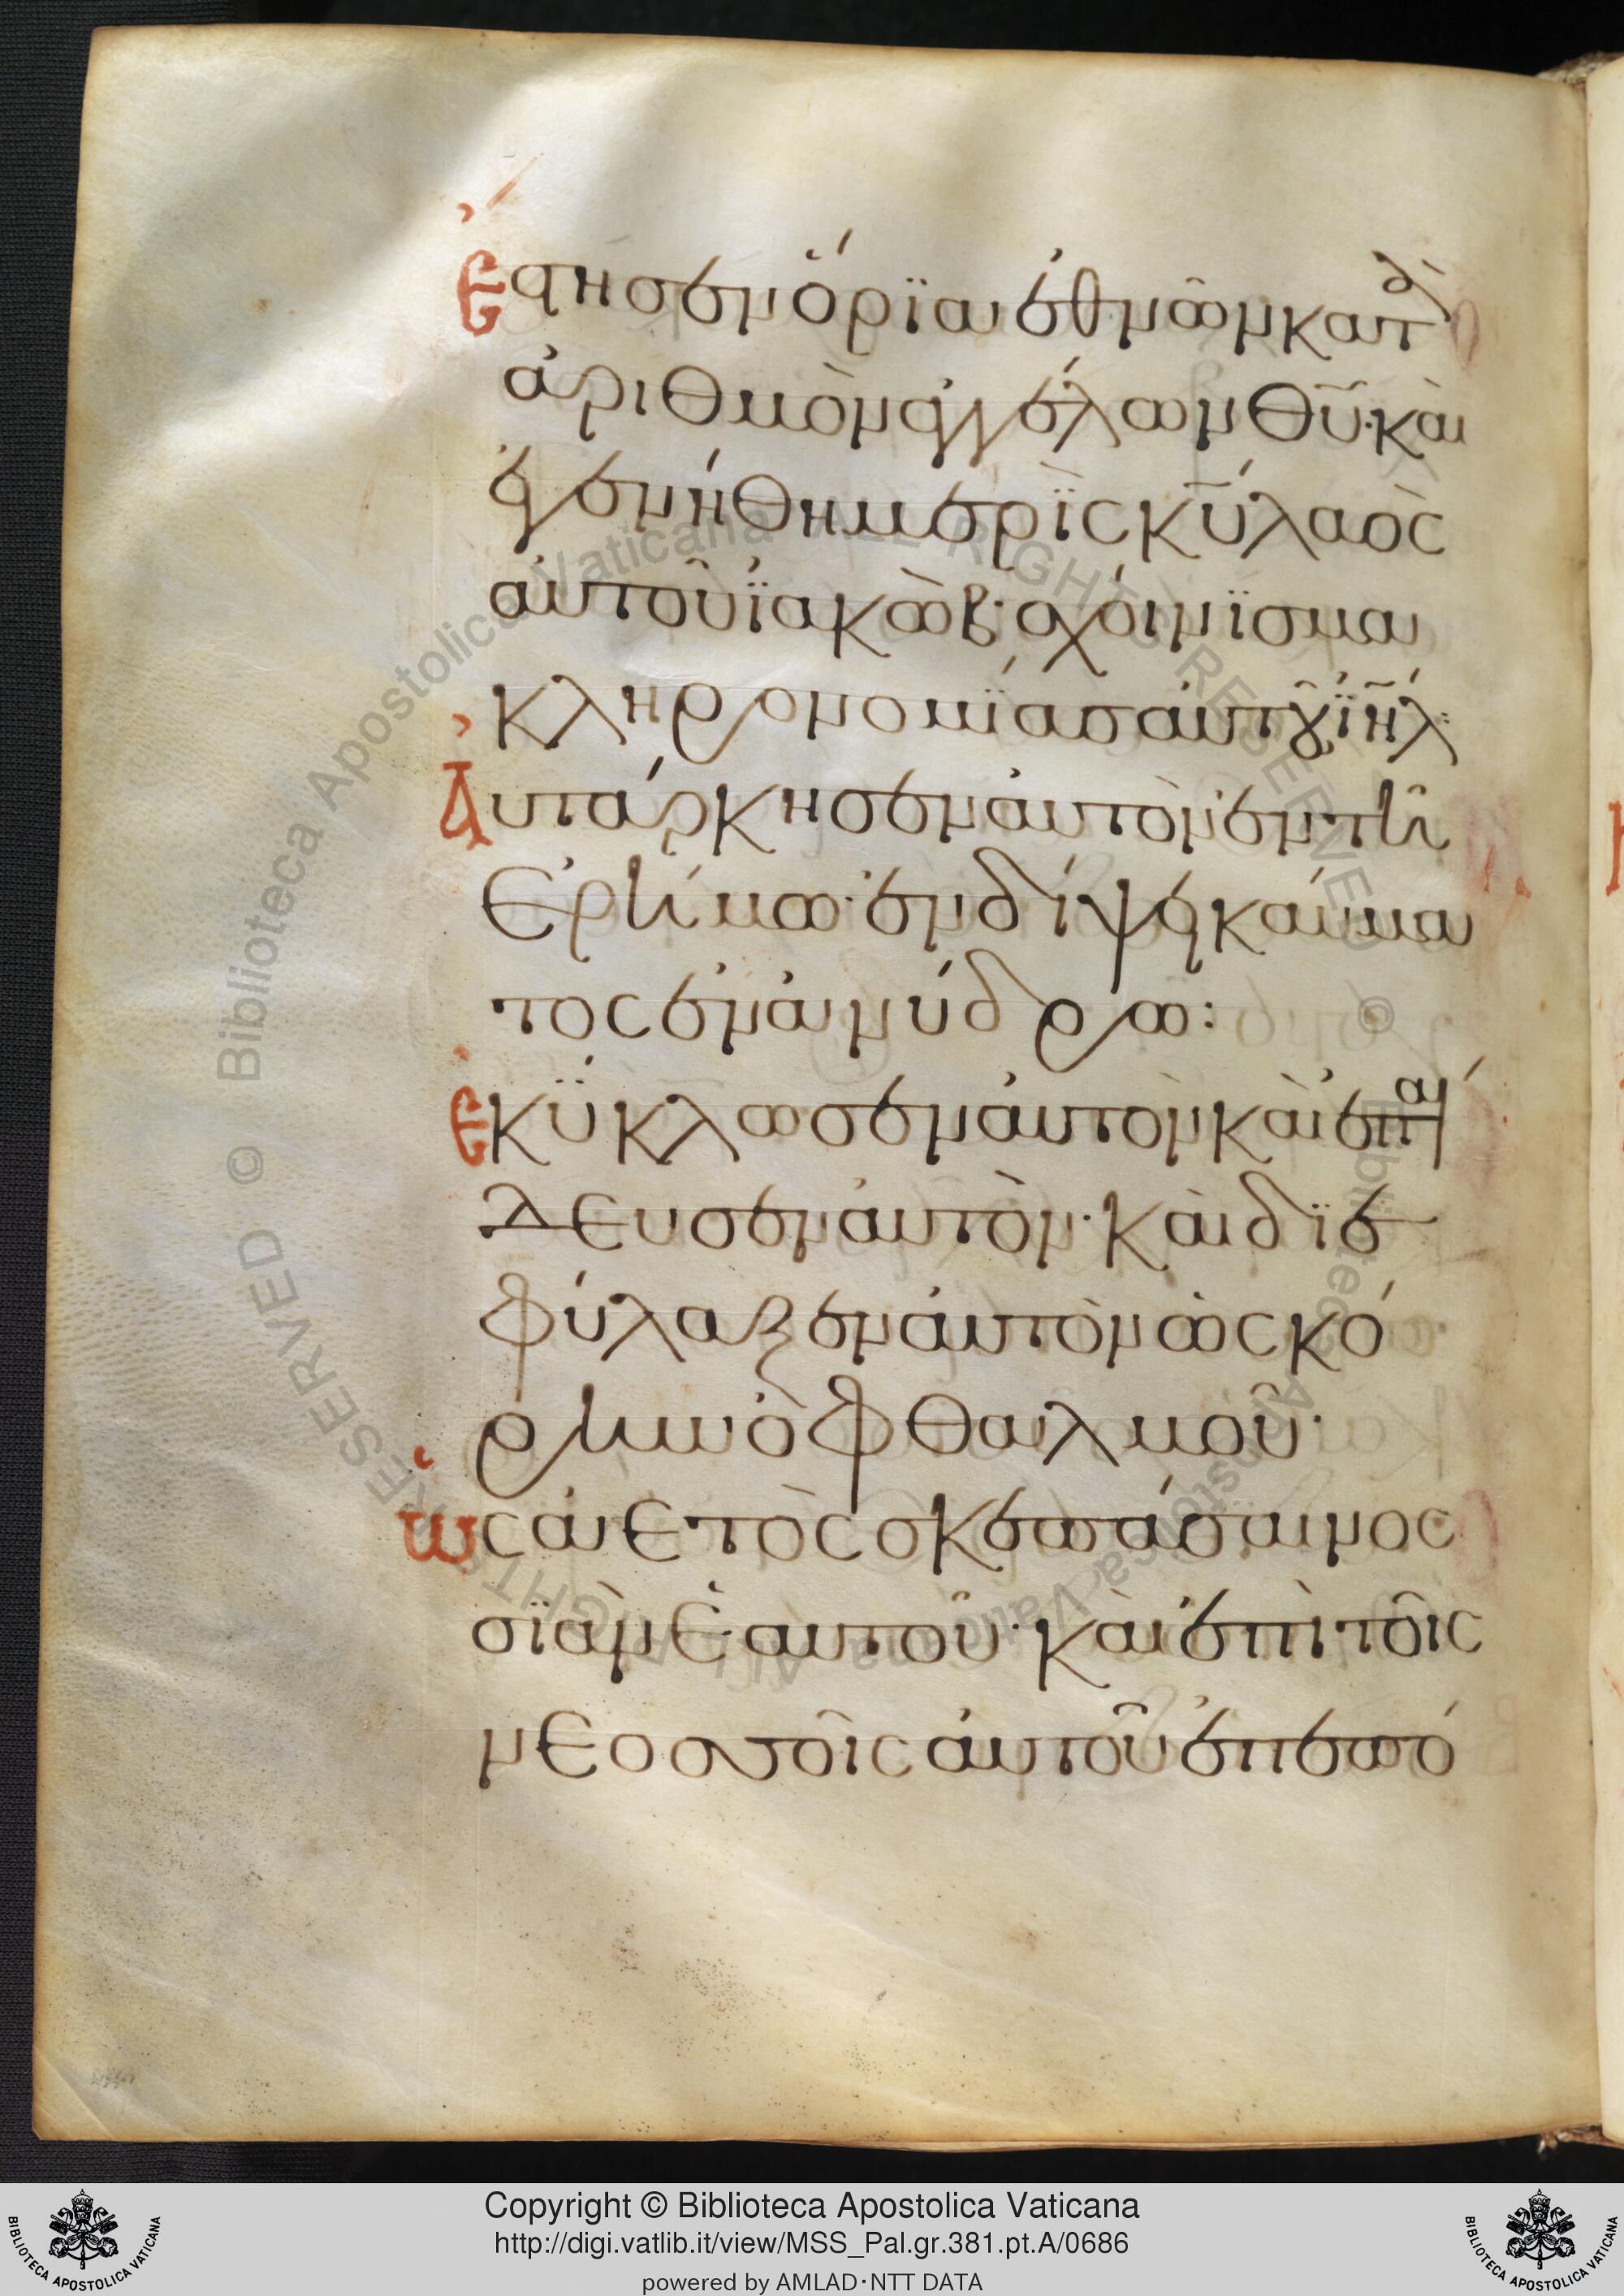 Ἔστησεν ὅρϊα ἐθνῶν κατὰ
ἀριθμὸν ἀγγέλων θῦ· καὶ
ἐγενήθη μερὶς κῦ λαὸς
αὐτοῦ ἰακὼβ· σχοίνϊσμα
κληρονομίας αὐτοῦ ἰῆλ:
Αὐτάρκησεν αὐτὸν ἐν τῆ
Ἐρήμω· ἐν δίψει καύμα
τος ἐν ἀνύδρω:
Ἐκύκλωσεν αὐτὸν καὶ ἐπαί
δευσεν αὐτὸν· καὶ δϊε
φύλαξεν αὐτὸν ὡς κό
ρην ὀφθαλμοῦ·
Ὡς ἀετὸς σκεπάσαι νοσ
σϊὰν ἑαυτοῦ· καὶ ἐπὶ τοῖς
νεοσσοῖς αὐτοῦ ἐπεπό
BIBLIOTECA APOSTOLICA VATICANA
Copyright © Biblioteca Apostolica Vaticana
http://digi.vatlib.it/view/MSS_Pal.gr.381.pt.A/0686
powered by AMLAD·NTT DATA
BIBLIOTECA APOSTOLICA VATICANA
© Biblioteca Apostolica Vaticana ALL RIGHTS RESERVED
© Biblioteca Apostolica Vaticana ALL RIGHTS RESERVED